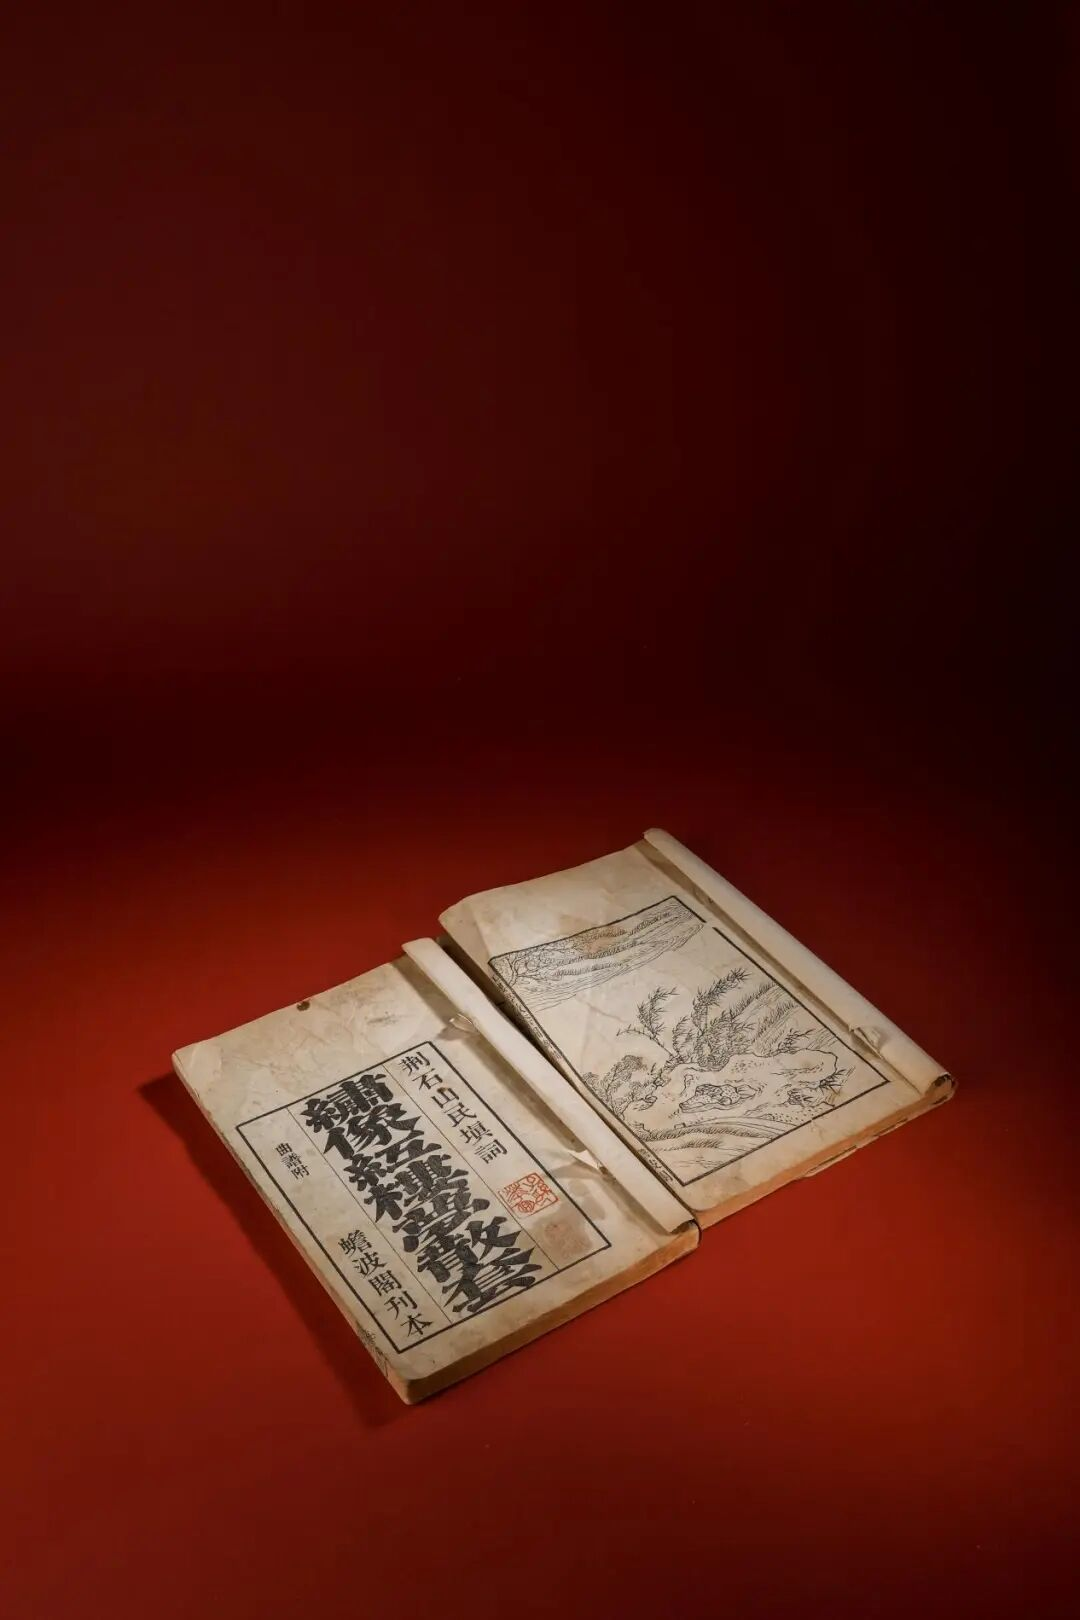 荆石山民填詞
繡像紅樓夢散套
曲譜附
蟾波閣刊本